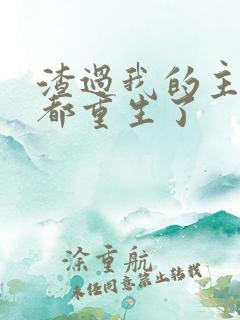 渣过我的主
都重生了
涂重航
未经同意禁止转载